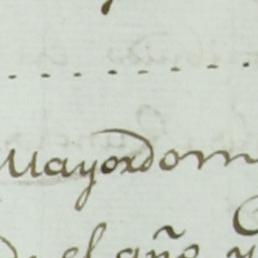 Mayordom
el año y